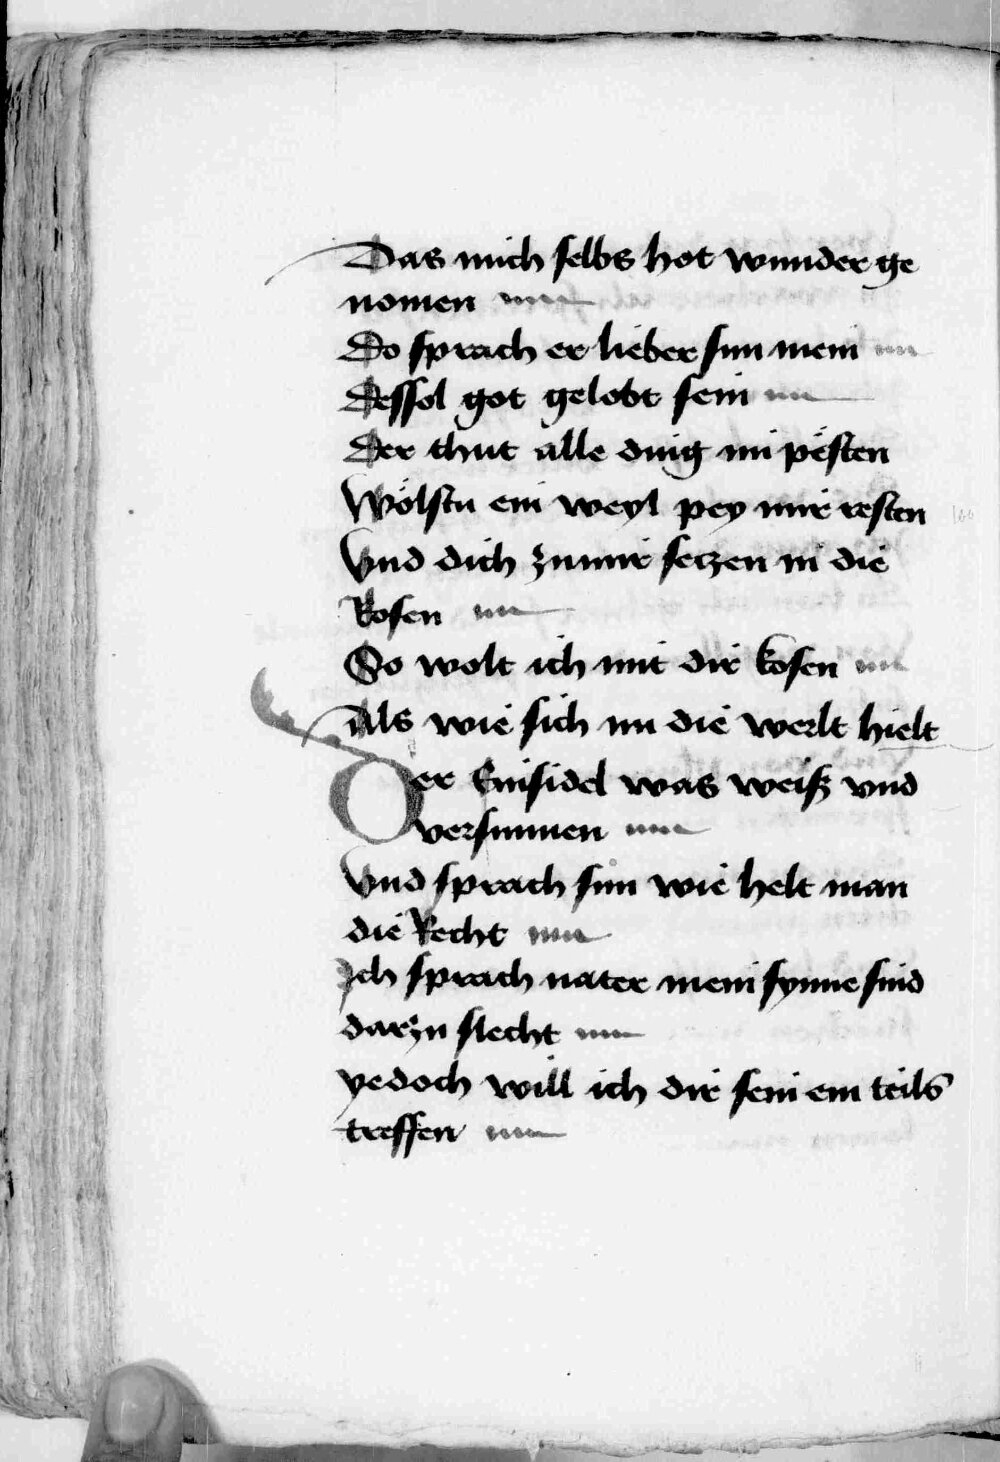 Das mich selbs hot wunder ge
nomen
Do sprach er lieber sun mein
Dessol got gelobt sein
Der thut alle ding im pësten
Wölstu ein weyl pey mir resten
Vnd dich zumir seczen in die
Rosen
So wolt ich mit dir kosen
Als wie sich im die werlt hielt
Der Einsidel was weiß vnd
versunnen
Vnd sprach sun wie helt man
die Recht
Ich sprach vater mein synne sind
darzu slecht
yedoch will ich dir sein ein teils
treffen